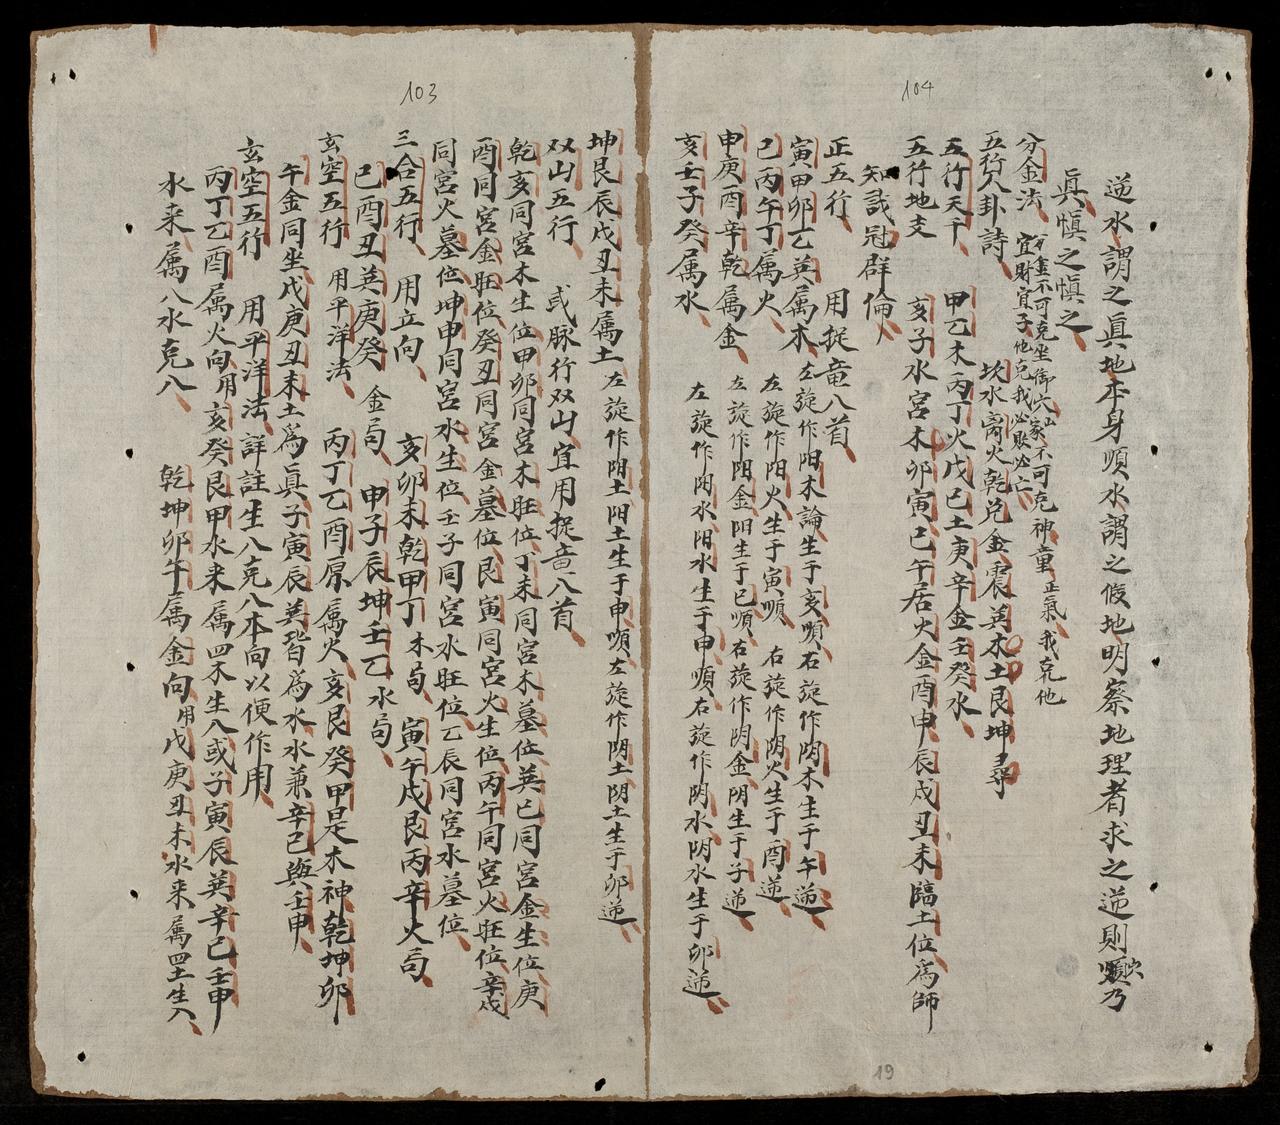 104
逆水謂之眞地本身順水謂之假地明察地理者求之逆則順乃
眞愼之愼之
分金法 宜財宜子他克我必敗必亡 神童 正氣 我克他
五行八卦詩 坎水离火乾兑金震巽木土艮坤尋
五行天干 甲乙木丙丁火戊己土庚辛金壬癸水
五行地支 亥子水宮木卯寅巳午居火金酉申辰戌丑未臨土位爲師
知識冠群倫
正五行 用捉竜八首
寅甲卯乙巽属木 左旋作阳木論生于亥順右旋作阴木生于午逆
巳丙午丁属火 左旋作阳火生于寅順 右旋作阴火生于酉逆
申庚酉辛乾属金 左旋作阳金阳生于巳順右旋作阴金阴生于子逆
亥壬子癸属水 左旋作阳水阳水生于申順右旋作阴水阴水生于卯逆
19
103
坤艮辰戌丑未属土 左旋作阳土阳土生于申順左旋作阴土阴土生于卯逆
双山五行 或脉行双山宜用捉竜八首
乾亥同宮木生位甲卯同宮木旺位丁未同宮木墓位巽巳同宮金生位庚
酉同宮金旺位癸丑同宮金墓位艮寅同宮火生位丙午同宮火旺位辛戌
同宮火墓位坤申同宮水生位壬子同宮水旺位乙辰同宮水墓位
三合五行 用立向 亥卯未乾甲丁木局 寅午戌艮丙辛火局
巳酉丑巽庚癸 金局 申子辰坤壬乙水局
玄空五行 用平洋法 丙丁乙酉原属火亥艮癸甲是木神乾坤卯
午金同坐戊庚丑未土爲眞子寅辰巽皆爲水水兼辛巳與壬申
玄空五行 用平洋法 詳註生入克入本向以便作用
丙丁乙酉属火向用亥癸艮甲水来属四木生入或子寅辰巽辛巳壬申
水来属八水克入 乾坤卯午属金向用戊庚丑未水来属四土生入